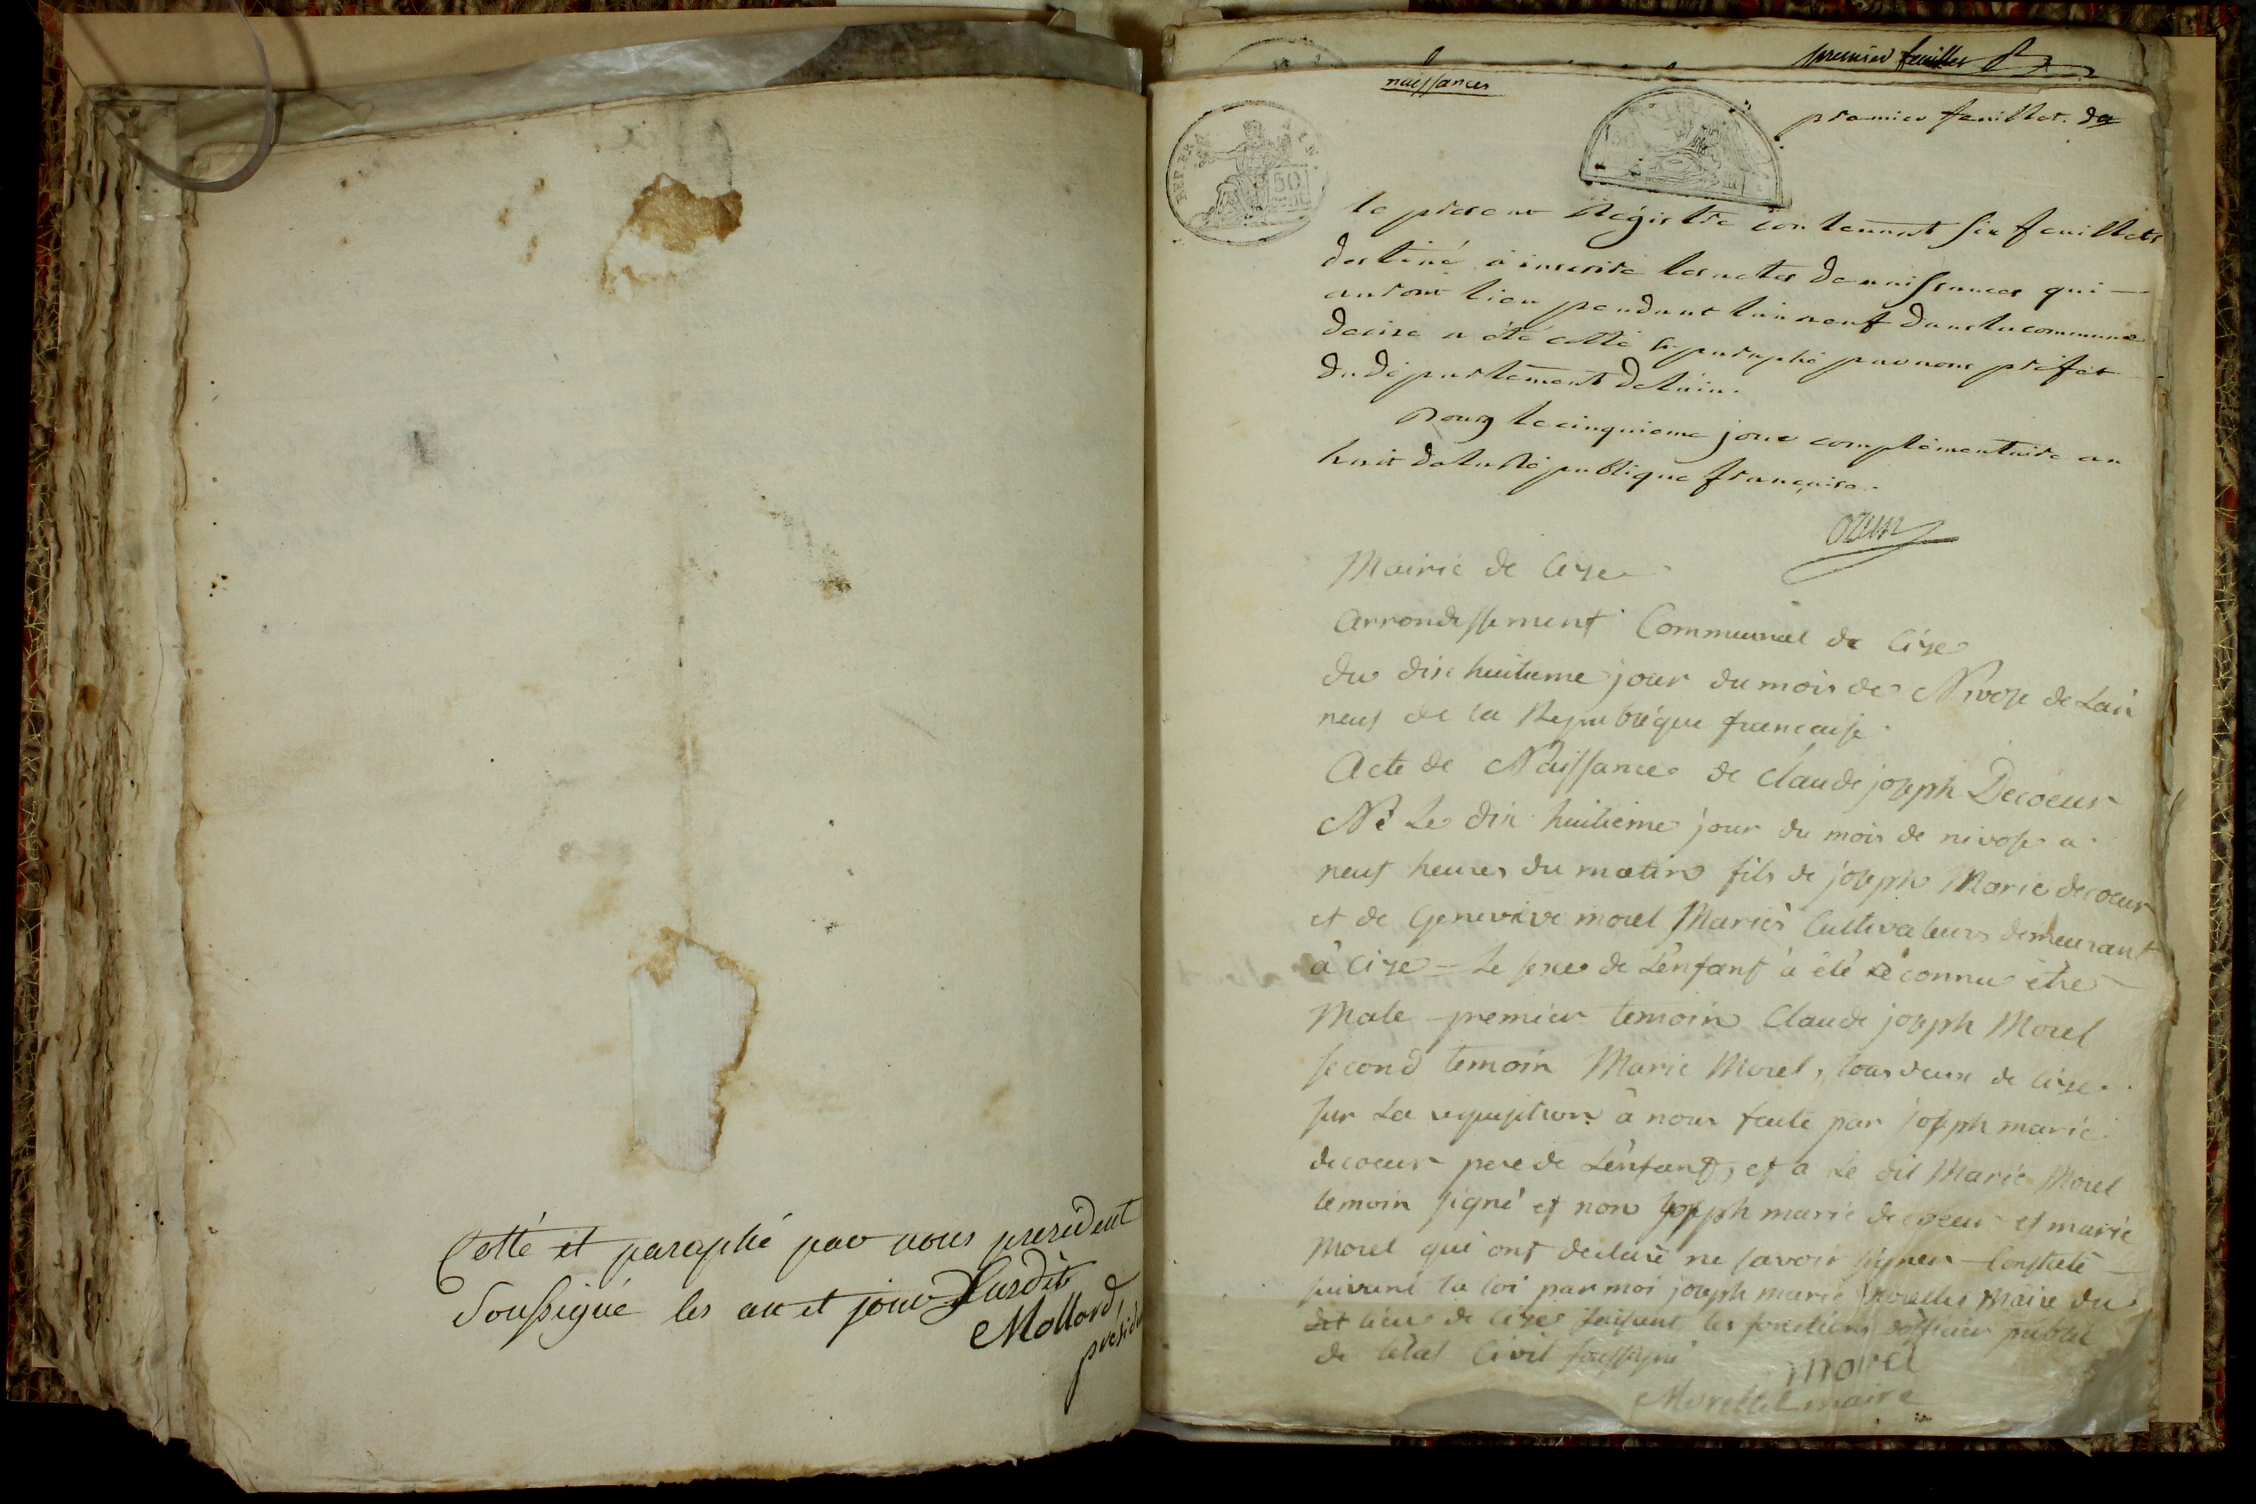 Cotté et paraphé par nous president
Soussigné les an et jour Susdit
Mollard,
présid
premier feuillet
naissances
premier feuillet. 
REP. FRA
50
le present Régistre contenant six feuillets
destiné a inscrire les actes de naissances qui
auront lieu pendant l'an neuf dans la commune
de cize a été cotté & paraphé par nous préfet
du département de l'ain.
Bourg le cinquieme jour complémentaire an
huit de la République française.
Ozun
Mairie de Cize
Arrondissement Communal de Cize
du dix huitieme jour du mois de Nivose de Lan
neuf de la Republique francaise
Acte de Naissance de Claude joseph Decoeur
Né Le dix huitieme jour du mois de nivose a
neuf heures du matin fils de joseph Marie decoeur
et de Genevieve morel Mariés Cultivateurs demeurant
à Cize = Le sexe de Lenfant à été Réconnu etre
Male premier temoin Claude joseph Morel
second temoin Marie Morel, tous deux de Cize
sur La requisition à nous faite par joseph marie
decoeur pere de Lenfant, et a Le dit Marie Morel
temoin signé et non joseph marie decoeur et marie
Morel qui ont declaré ne savoir signer Constaté
suivant la loi par moi joseph marie Morellet Maire du
dit lieu de Cize faisant les fonctions dofficier public
de letat Civil soussigné
morel
Morellet maire